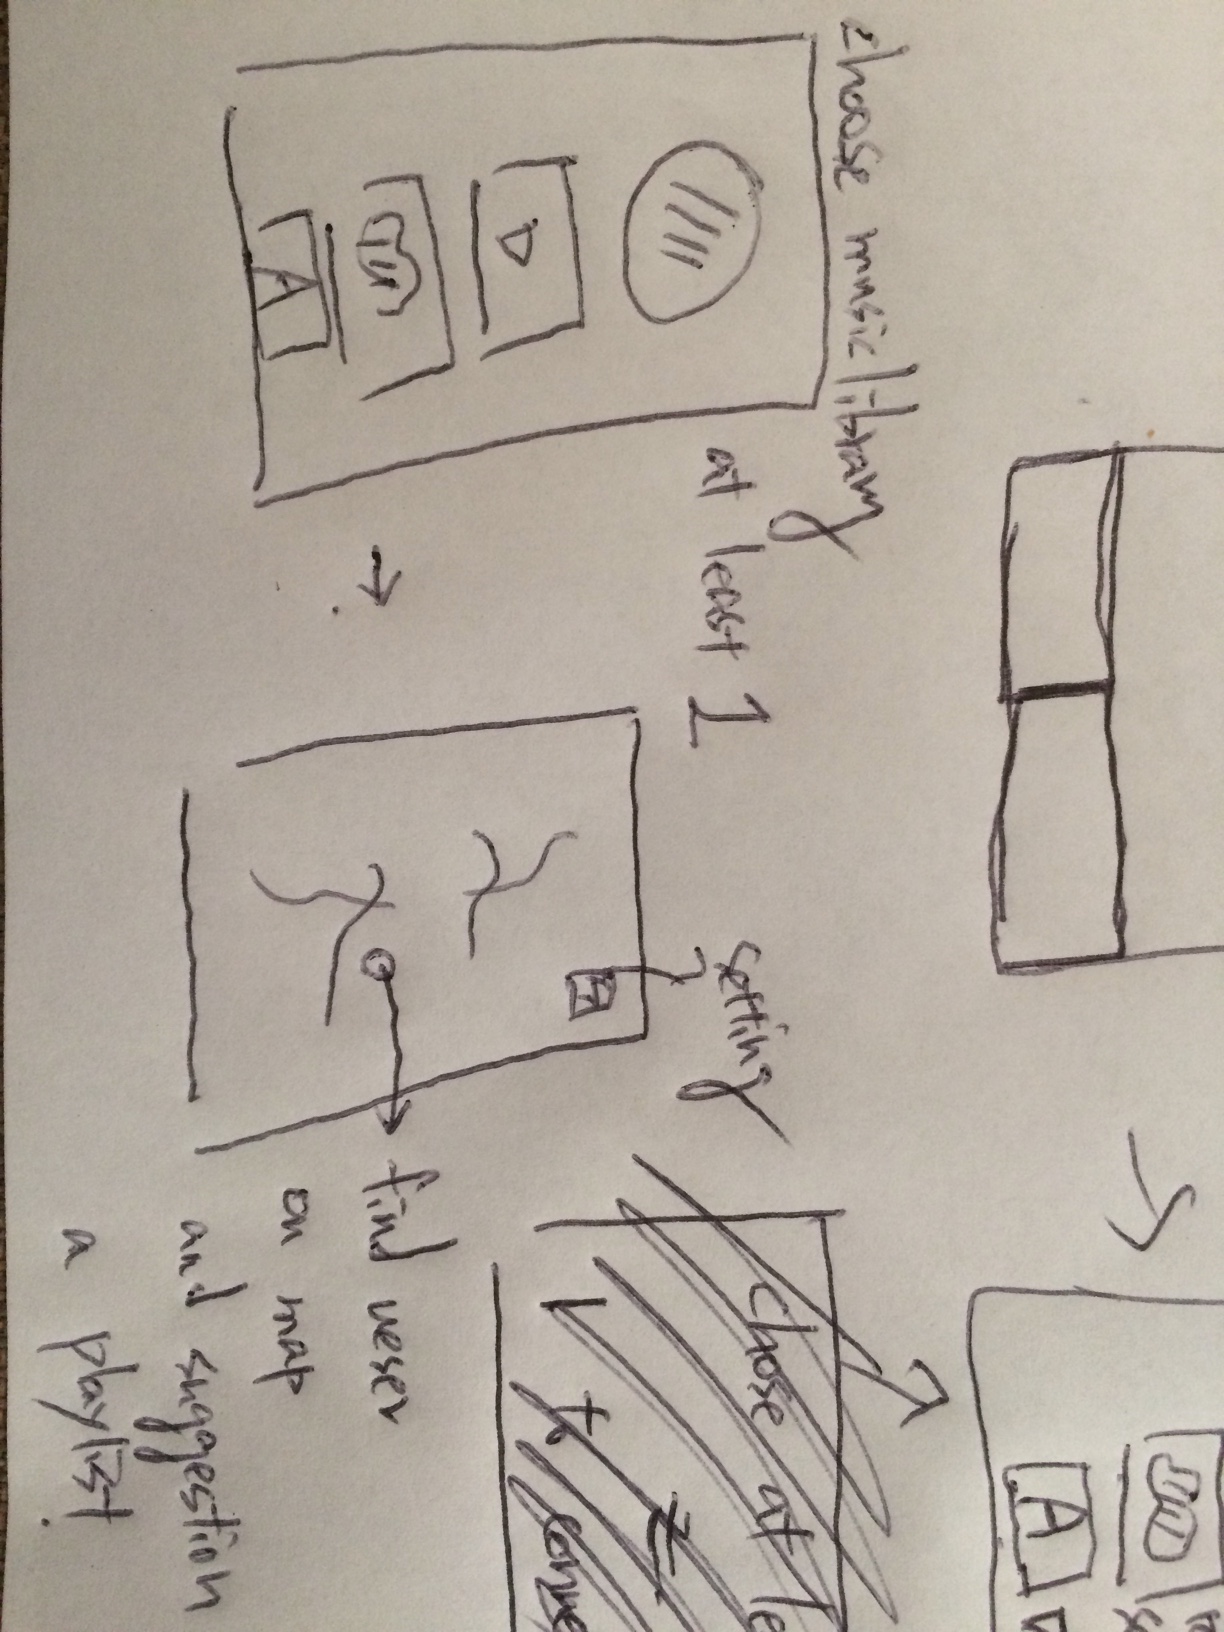 choose music library
at least 1
setting
find
on map
and suggestion
a playlist.
A
A
A
chose at le
t
conne